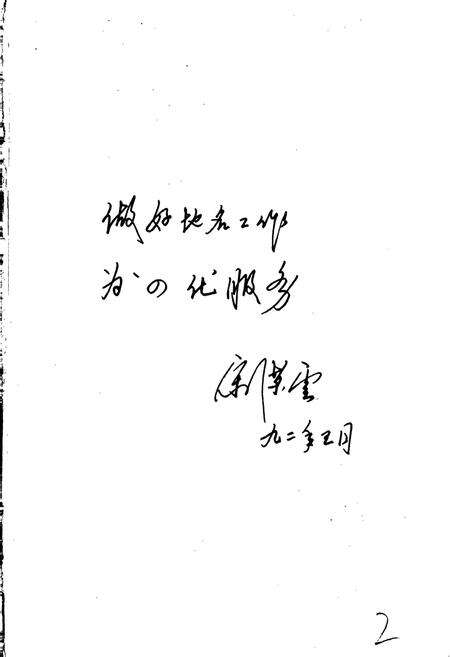 做好地名工作
为四化服务
荣云
九二年三月
2